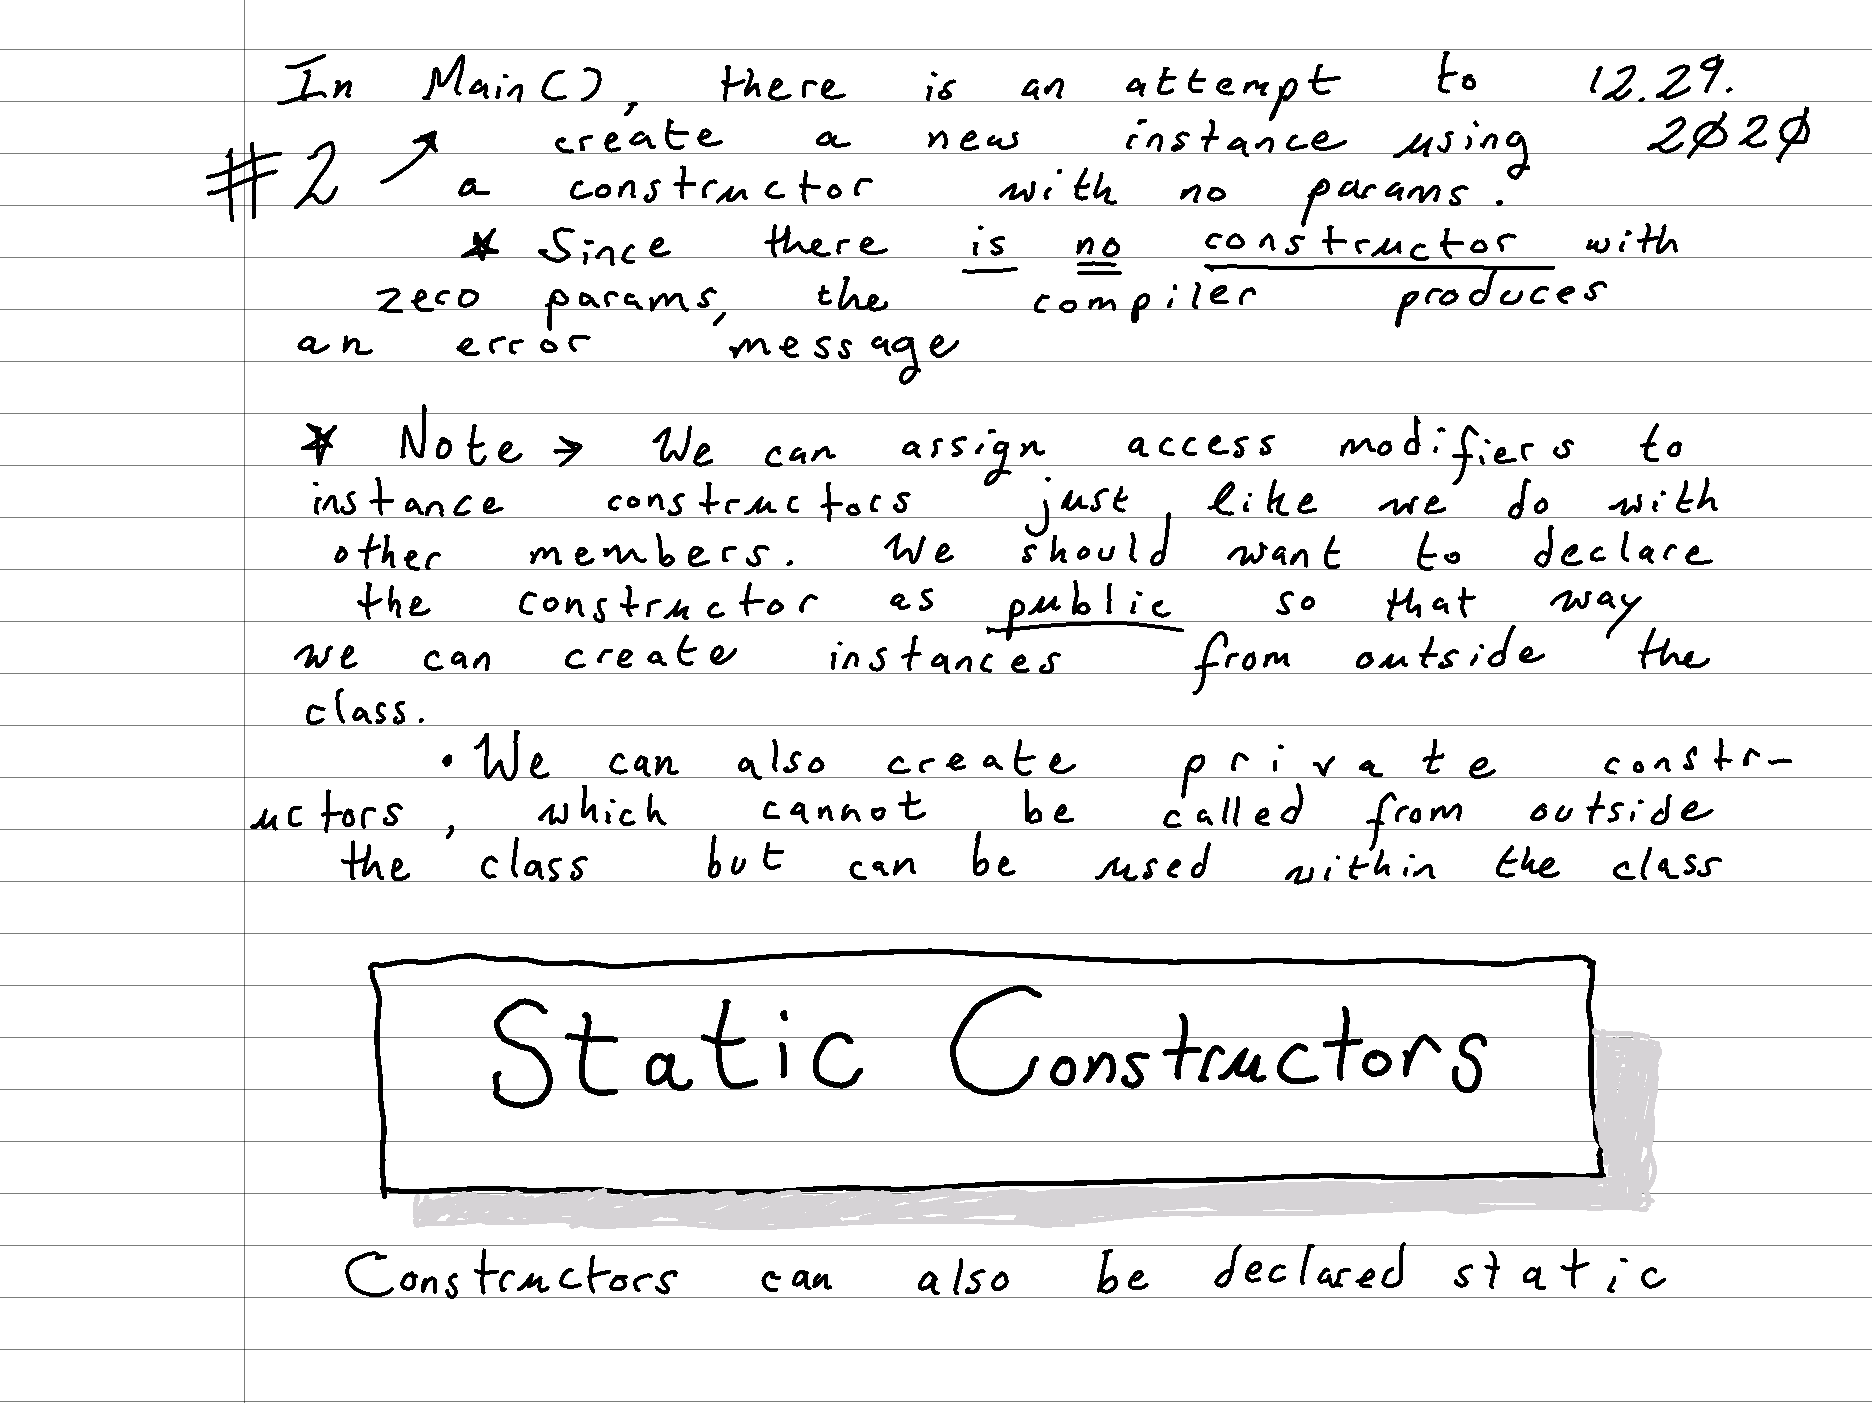 In Main(), there is an attempt to 12.29.
create a new instance using 2020
#2 ↗ a constructor with no params.
★ Since there is no constructor with
zero params, the compiler produces
an error message
★ Note → We can assign access modifiers to
instance constructors just like we do with
other members. We should want to declare
the constructor as public so that way
we can create instances from outside the
class.
• We can also create private constr-
uctors, which cannot be called from outside
the class but can be used within the class
Static Constructors
Constructors can also be declared static